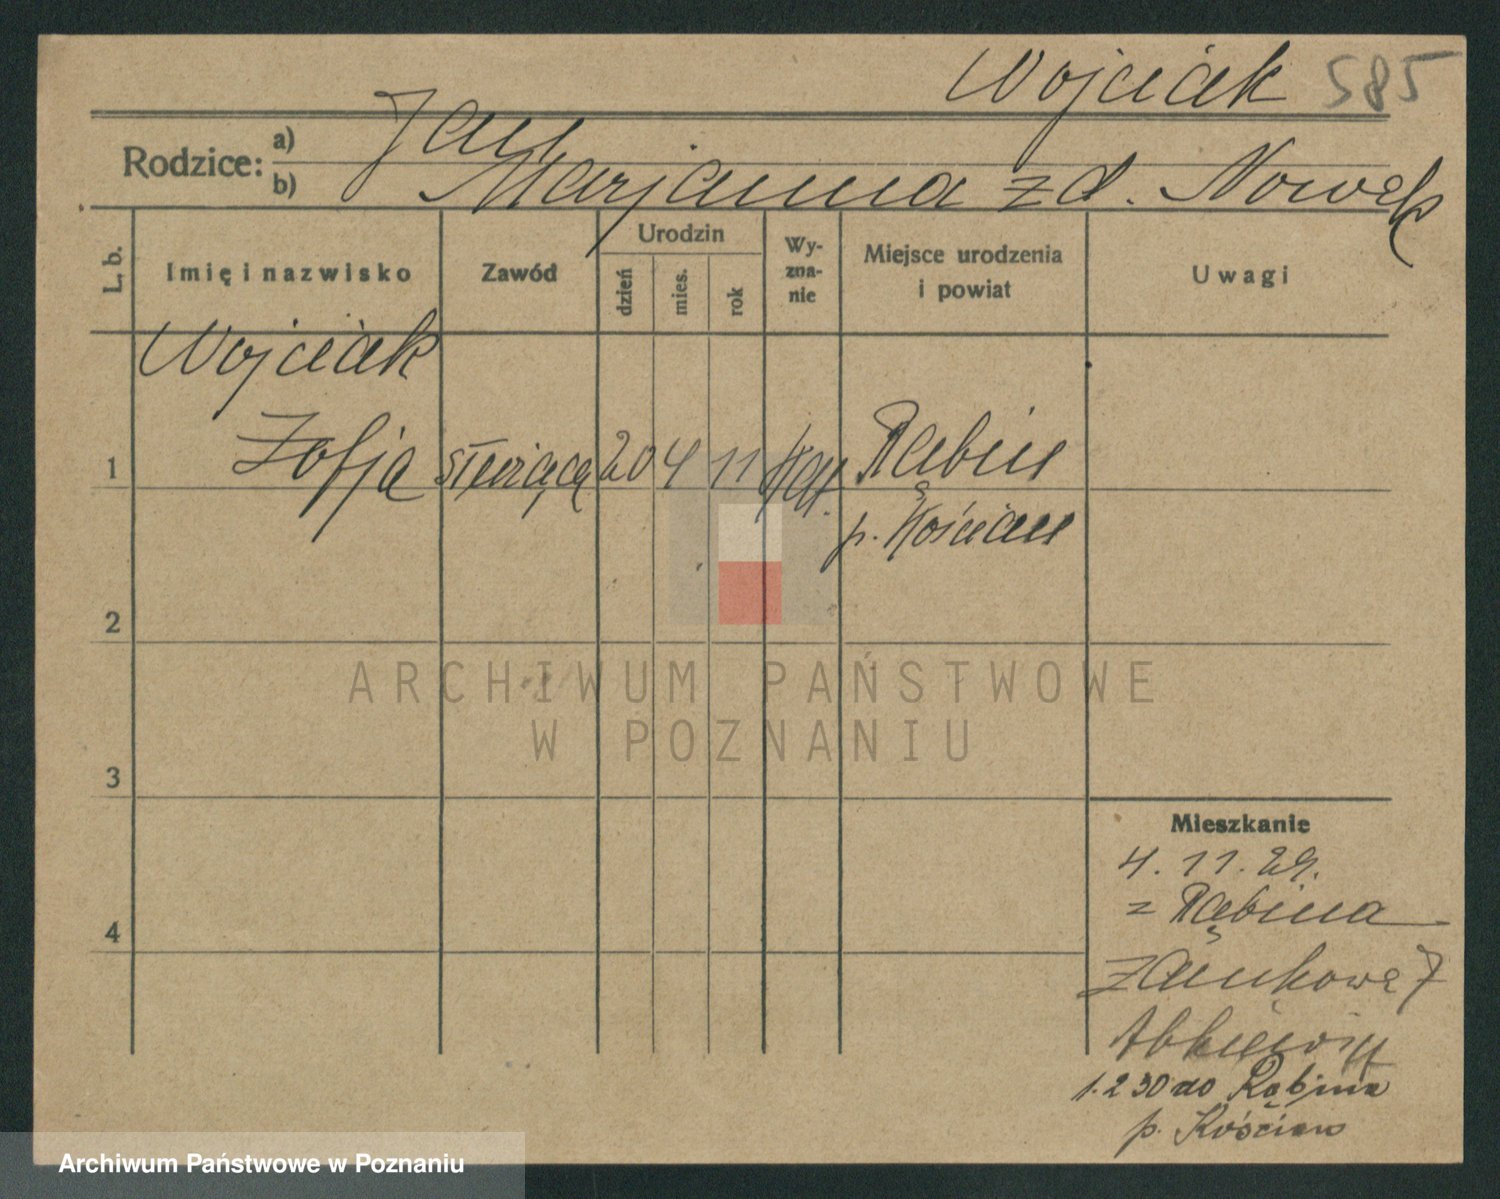 Wojciak 585
Rodzice: a) Jan
b) Marjanna zd. Nowak
L. b.
Imię i nazwisko
Zawód
Urodzin
dzień
mies.
rok
Wy-
zna-
nie
Miejsce urodzenia
i powiat
Uwagi
Wojciak
1 Zofja służąca 20 4 11 kat. Rąbiń
p. Kościan
2
3
4
Mieszkanie
4. 11. 29.
z Rąbina
Zamkowa 7
1. 2 30 do Rąbina
p. Kościan
ARCHIWUM PAŃSTWOWE
W POZNANIU
Archiwum Państwowe w Poznaniu